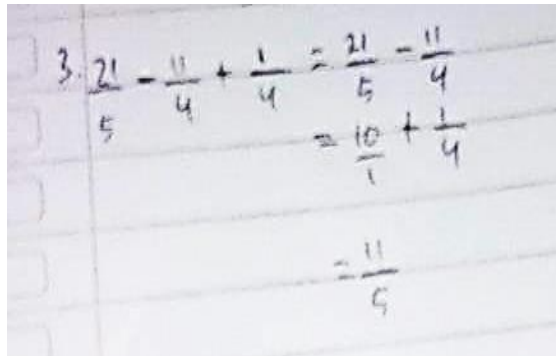 3. 21/5 - 11/4 + 1/4 = 21/5 - 11/4
= 10/1 + 1/4
= 11/5